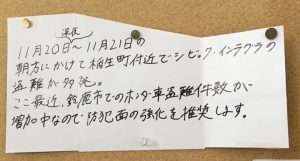 深夜
11月20日〜11月21日の
朝方にかけて稲生町付近でシビック・インテグラの
盗難が多発。
ここ最近、鈴鹿市でのホンダ車盗難件数が
増加中なので防犯面の強化を推奨します。